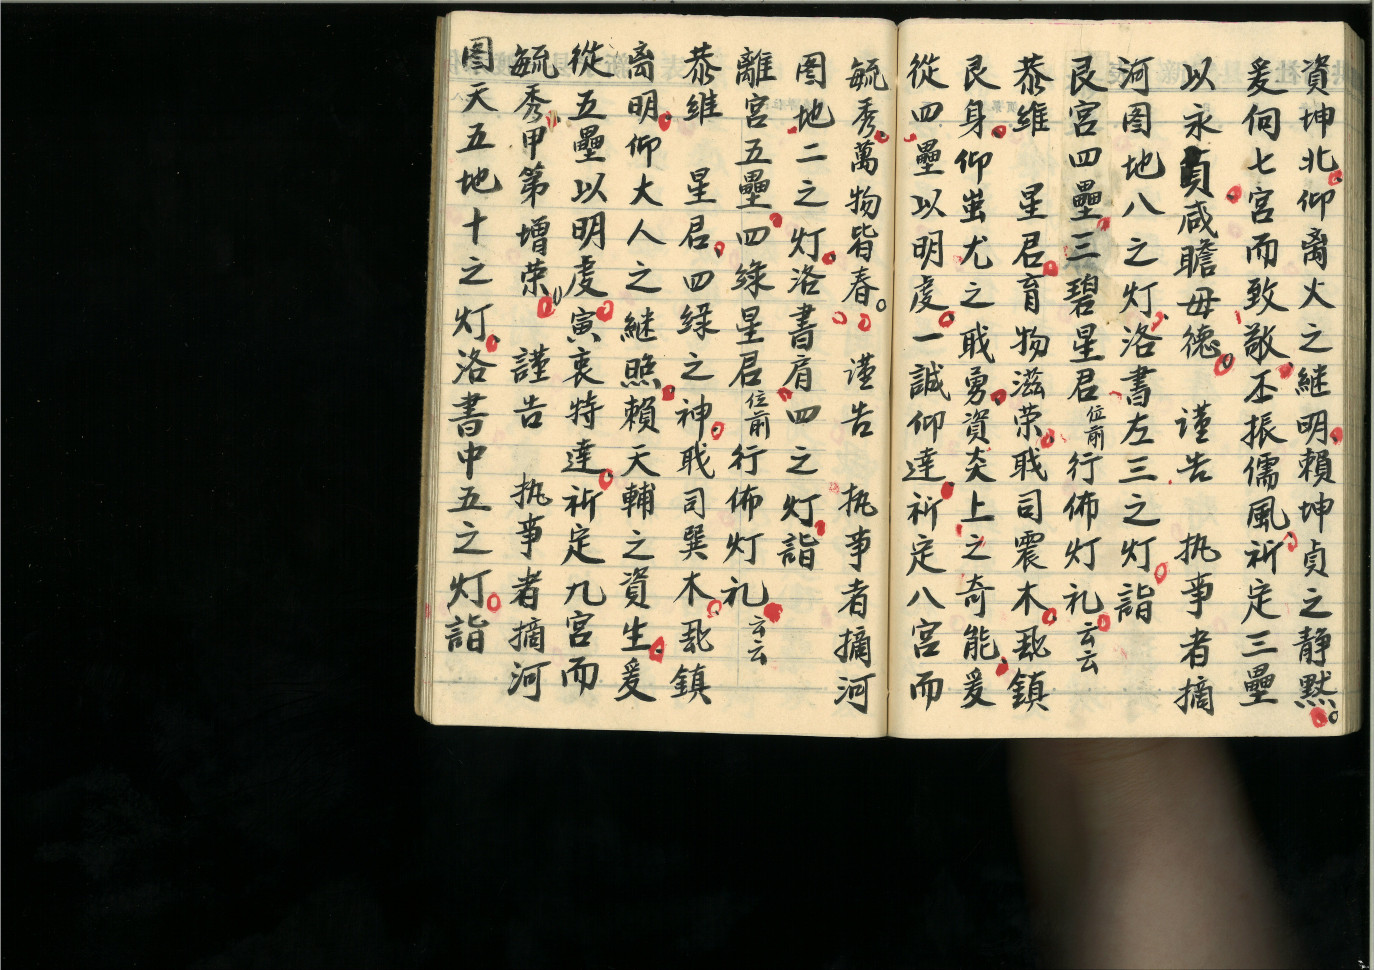 資坤北仰离火之継明賴坤貞之静黙
爰伺七宮而致敬丕振儒風祈定三壘
以永貞咸瞻母德 謹告 执事者摘
河图地八之灯洛書左三之灯詣
艮宮四壘三碧星君位前行佈灯礼云云
恭維 星君育物滋荣戝司震木
艮身仰蚩尤之戝勇資炎上之奇能爰
從四壘以明虔一誠仰達祈定八宮而
毓秀萬物皆春 谨告 执事者摘河
图地二之灯洛書肩四之灯詣
離宮五壘四綠星君位前行佈灯礼云云
恭維 星君四綠之神戝司巽木 鎮
离明仰大人之継照賴天輔之資生爰
從五壘以明虔寅衷特達祈定九宮而
毓秀甲第增荣 謹告 执事者摘河
图天五地十之灯洛書中五之灯詣